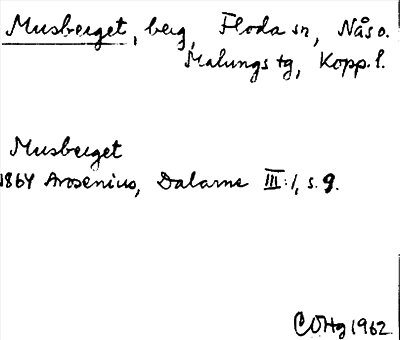 Musberget, berg, Floda sn, Nås o.
Malungs tg, Kopp. l.
Musberget
1864 Arosenius, Dalarne III:1, s. 9.
COHg 1962.